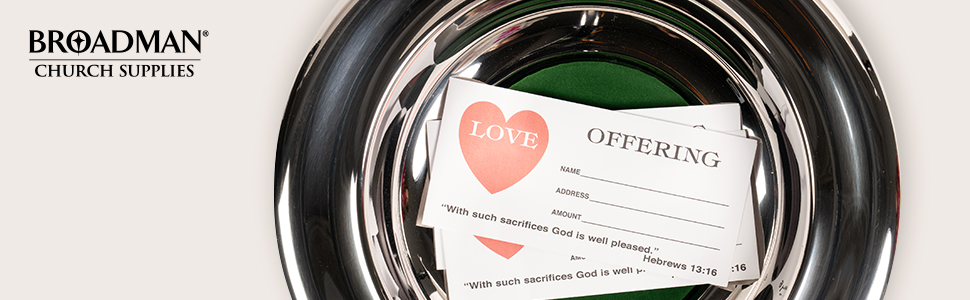 BROADMAN®
CHURCH SUPPLIES
LOVE OFFERING
NAME
ADDRESS
AMOUNT
"With such sacrifices God is well pleased."
Hebrews 13:16
:16
"With such sacrifices God is well